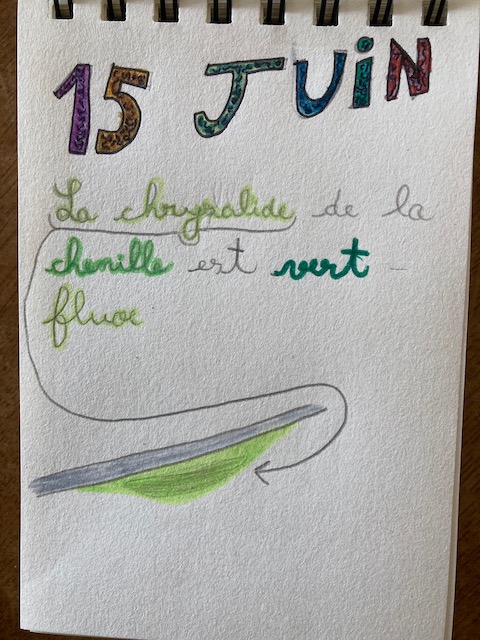 15 JUiN
La chrysalide de la
chenille est vert -
fluo